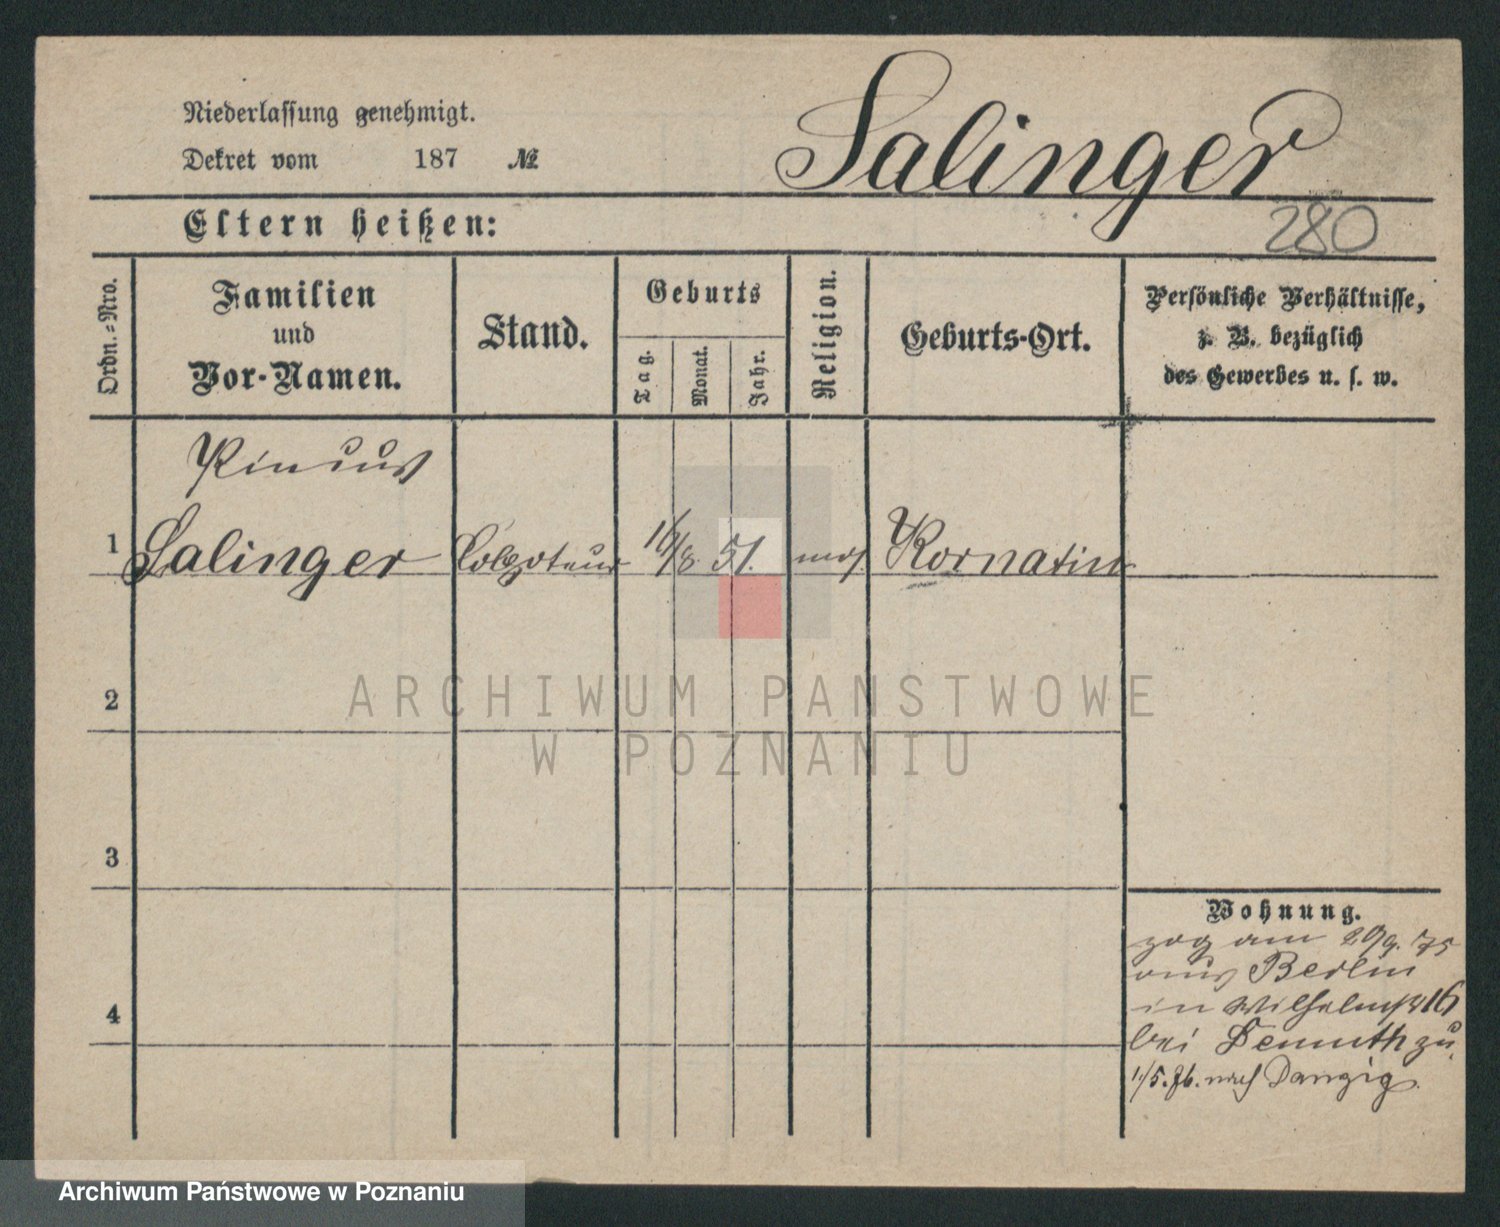 Niederlassung genehmigt.
Dekret vom 187 №
Salinger
280
Eltern heißen:
Ordn.-Nro.
Familien
und
Vor-Namen.
Stand.
Geburts
Tag.
Monat.
Jahr.
Religion.
Geburts-Ort.
Persönliche Verhältnisse,
z. B. bezüglich
des Gewerbes u. s. w.
Pincus
1 Salinger 16/8 51. mos. Kornatin
2
3
4
ARCHIWUM PAŃSTWOWE
W POZNANIU
Wohnung.
zog am 29/9. 75
aus Berlin
in Wilhelmstr 16
bei Demuth zu.
1/5. 76. nach Danzig.
Archiwum Państwowe w Poznaniu